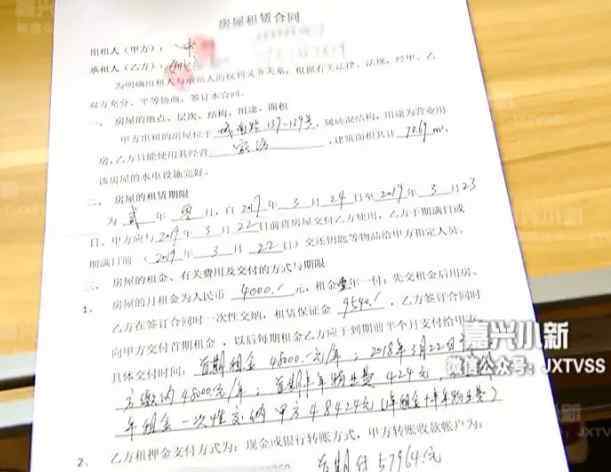 房屋租赁合同
出租人（甲方）：
承租人（乙方）：
为明确出租人与承租人的权利义务关系，根据有关法律、法规，经甲、乙
双方充分、平等协商，签订本合同。
一、房屋的地点、层次、结构、用途、面积
甲方出租的房屋位于 137-139号，属砖混结构，用途为营业用
房，乙方只能使用其经营 ，建筑面积共计 70.69 m²，
该房屋的水电设施完好。
二、房屋的租赁期限
为 贰 年 零 月，自 2017 年 3 月 24 日至 2019 年 3 月 23
日，甲方应与 2017 年 3 月 22 日前将房屋交付乙方使用，乙方于期满日或
期满日前（ 2019 年 3 月 22 日）交还钥匙等物品给甲方指定人员。
三、房屋的租金、有关费用及交付的方式与期限
1、房屋的月租金为人民币 4000.- 元，租金壹年一付；先交租金后用房。
乙方在签订合同时一次性交纳，租赁保证金 9540.- ，乙方签订合同时
向甲方交付首期租金，以后每期租金乙方应于到期前半个月支付给甲方
具体交付时间：首期租金 48000.-元/年；2018年3月22日
方缴纳48000元/年；首期半年物业费 424元，
年租金一次性交纳甲方48424元（年租金+半年物业费）
2、乙方租押金支付方式为：现金或银行转账方式，甲方转账收款帐户为：
首期付57964元
嘉兴小新
微信公众号：JXTVSS